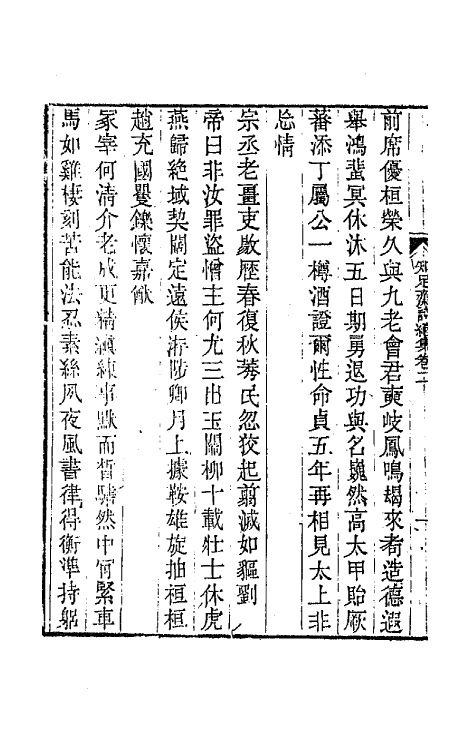 前席優桓榮久與九老會君奭岐鳳鳴朅來耇造德遐
舉鴻蜚冥休沐五日期勇退功與名巍然高太甲貽厥
蕃添丁屬公一樽酒證爾性命貞五年再相見太上非
忘情
宗丞老畺吏敭歷春復秋莠民忽狡起翦滅如軀劉
帝曰非汝罪盜憎主何尤三出玉關柳十載壯士休虎
燕歸絶域契闊定遠侯洊陟卿月上據鞍雄旋抽桓桓
趙充國矍鑠懷嘉猷
冢宰何清介老成更精練事默而晢然中肯緊車
馬如雞棲刻苦能法忍素絲夙夜風書律得衡準持躬
知足齋詩續集卷二